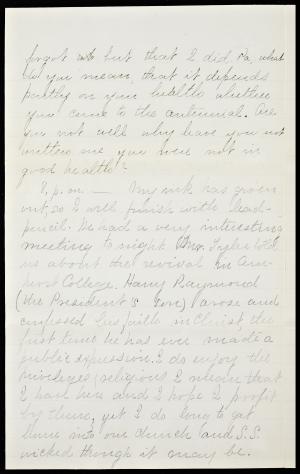 forgot but that I did. Pa, what
do you mean, that it depends
partly on your health whether
you come to the centennial. Are
you not well why have you not
written me you were not in
good health?
8, p.m. — My ink has given
out, so I will finish with lead-
pencil. We had a very interesting
meeting to night Mr. Tyler told
us about the revival in Am-
herst College. Harry Raymond
(the President's son) arose and
confessed his faith in Christ, the
first time he has ever made a
public expression. I do enjoy the
privileges (religious I mean that
I have here and I hope I profit
by them, yet I do long to get
home into our church and S.S.
wicked though it may be.